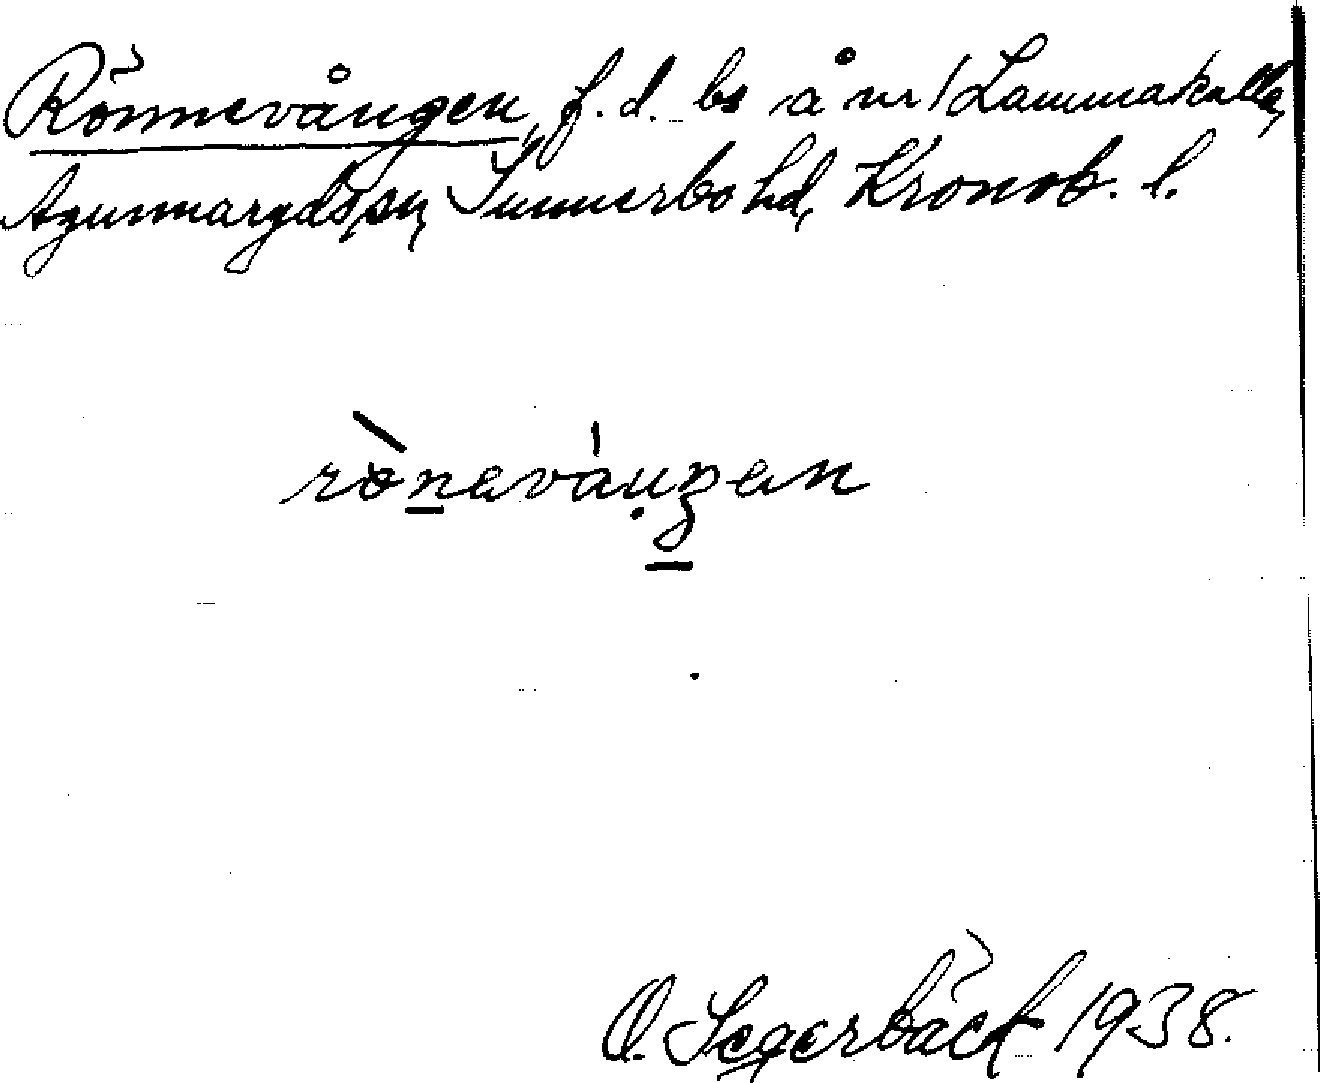 Rönnevången, f.d. bs å nr 1 Lammakulla,
Agunnaryds sn, Sunnerbo hd, Kronob. l.
rönevåŋgen
O. Segerbäck 1938.